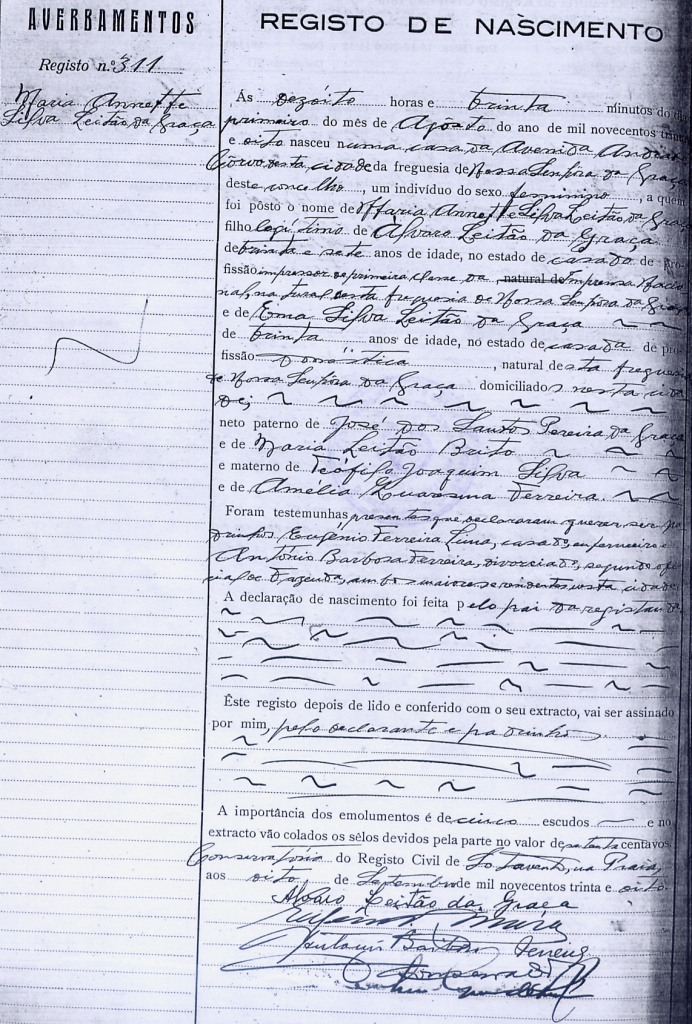 AVERBAMENTOS
Registo n.º 311
Maria Annette
Silva Leitão da Graça
REGISTO DE NASCIMENTO
Ás dezóito horas e trinta minutos do dia
primeiro do mês de Agosto do ano de mil novecentos trinta
e oito nasceu numa casa da Avenida Andrade
Côrvo desta cidade da freguesia de Nossa Senhora da Graça
deste concelho, um indivíduo do sexo feminino, a quem
foi pôsto o nome de Maria Annette Silva Leitão da Graça
filho legítimo de Álvaro Leitão da Graça
de trinta e sete anos de idade, no estado de casado de pro-
fissão impressor de primeira classe da natural de Imprensa Nacio-
nal, natural desta freguesia de Nossa Senhora da Graça
e de Ema Silva Leitão da Graça
de trinta anos de idade, no estado de casada de pro-
fissão doméstica, natural desta freguesia
de Nossa Senhora da Graça domiciliados nesta cida-
de;
neto paterno de José dos Santos Pereira da Graça
e de Maria Leitão Brito
e materno de Teófilo Joaquim Silva
e de Amélia Quaresma Ferreira.
Foram testemunhas presentes que declararam querer ser pa-
drinhos, Eugénio Ferreira Lima, casado, enfermeiro e
António Barbosa Ferreira, divorciado, segundo ofi-
cial de Fazenda, ambos maiores e residentes nesta cidade
A declaração de nascimento foi feita pelo pai da registanda
Êste registo depois de lido e conferido com o seu extracto, vai ser assinado
por mim, pelo declarante e padrinhos
A importância dos emolumentos é de cinco escudos e no
extracto vão colados os sêlos devidos pela parte no valor de setenta centavos
Conservatória do Registo Civil de Sotavento, na Praia,
aos oito de Setembro de mil novecentos trinta e oito.
Alvaro Leitão da Graça